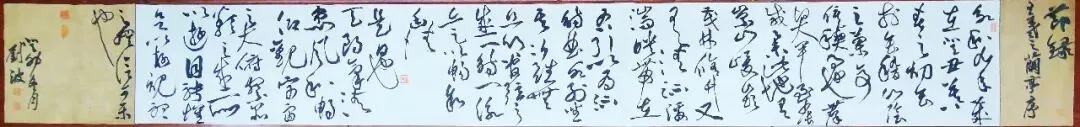 節錄
王羲之蘭亭序
永和九年歲
在癸丑暮
春之初會
於會稽山陰
之蘭亭
修禊事也羣
賢畢至少長
咸集此地有
崇山峻嶺
茂林修竹又
有清流激
湍映帶左
右引以為流
觴曲水列坐
其次雖無
絲竹管弦之
盛一觴一詠
亦足以暢敘
幽情
是日也
天朗氣清
惠風和暢
仰觀宇宙
之大俯察品
類之盛所
以遊目騁懷
足以極視聽
之娛信可樂
也
癸卯冬月
劉波